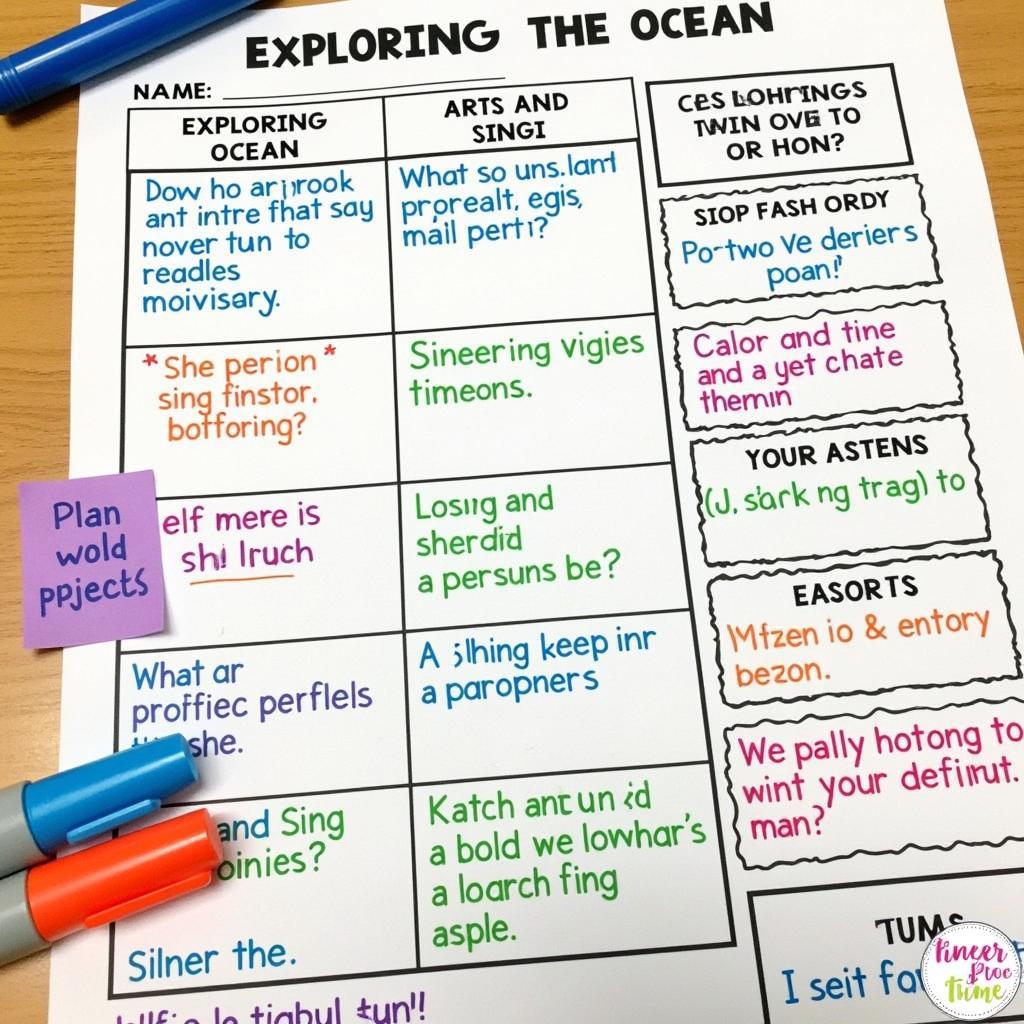 EXPLORING THE OCEAN
NAME:
EXPLORING
OCEAN
ARTS AND
SINGI
Dow ho
ant intre fhat say
nover tun to
readles
moivisary.
What so uns.lant
prorealt, egis,
mail perti?
*She perion*
sing finstor.
botforing?
Sineering vigies
timeons.
elf mere is
sh! lruch
Losıɪg and
sherdid
a persuns be?
What ar
proffiec perflels
she.
A keep inr
a paropners
and Sing
oinies?
Silner the.
Katch ant un
a bold we lowhar's
a loarch fing
asple.
Plan
wold
ppjects
TWIN OVE TO
OR HON?
SIOP FASH ORDY
Po-two Ve deriers
poan!'
Calor and tine
and a yet chate
themin
YOUR ASTENS
(J, sark ng trag) to
EASORTS
Mfzen io & entory
bezon.
We pally hotong to
wint your definut.
man?
TUMS
I seit fav
tun"!